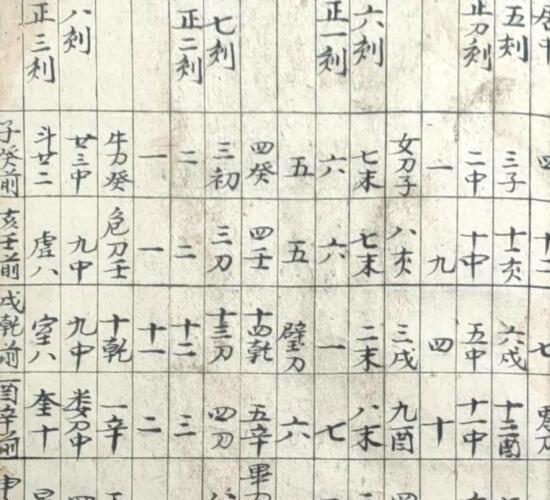 四 十二 七
五刻 三子 十一亥 六戌 十二酉
二中 十中 五中 十一中
一 九 四 十
女刀子 八亥 三戌 九酉
六刻 七末 七末 二末 八末
正一刻 六 六 一 七
五 五 壁刀 六
四癸 四壬 十四乾 五辛 畢
七刻 三初 三刀 十三刀 四刀
正二刻 二 二 十二 三
一 一 十一 二
牛刀癸 危刀壬 十乾 一辛
八刻 廿三中 九中 九中 娄刀中
正三刻 斗廿二 虚八 室八 奎十
子癸前 亥壬前 戌乾前 酉辛前